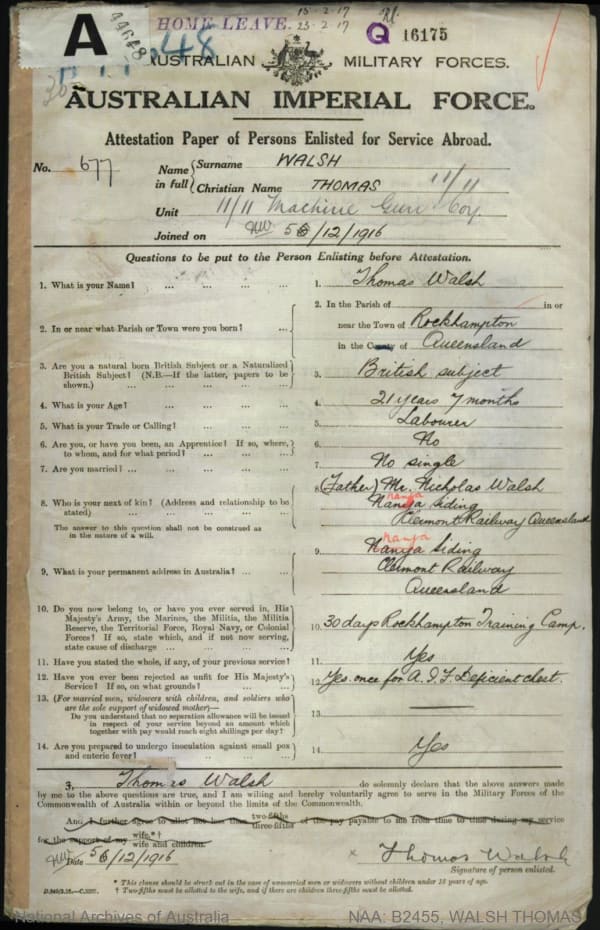 HOME LEAVE. 15-2-17
23-2-17
A 44648
48
Q 16175
AUSTRALIAN MILITARY FORCES.
AUSTRALIAN IMPERIAL FORCE.
Attestation Paper of Persons Enlisted for Service Abroad.
No. 677
Name in full { Surname WALSH
Christian Name THOMAS 11/11
Unit 11/11 Machine Gun Coy.
Joined on 5/12/1916
Questions to be put to the Person Enlisting before Attestation.
1. What is your Name? ... ... ... 1. Thomas Walsh
2. In or near what Parish or Town were you born? ... 2. In the Parish of in or
near the Town of Rockhampton
in the County of Queensland
3. Are you a natural born British Subject or a Naturalized
British Subject? (N.B.—If the latter, papers to be
shown.) ... ... ... ... 3. British subject
4. What is your Age? ... ... ... 4. 21 years 7 months
5. What is your Trade or Calling? ... ... 5. Labourer
6. Are you, or have you been, an Apprentice? If so, where,
to whom, and for what period? ... ... ... 6. No
7. Are you married? ... ... ... ... 7. No single
8. Who is your next of kin? (Address and relationship to be
stated) ... ... ... ... 8. (Father) Mr. Nicholas Walsh
nanya
Nanya Siding
Clermont Railway Queensland
The answer to this question shall not be construed as
in the nature of a will.
9. What is your permanent address in Australia? ... ... 9. nanya
Nanya Siding
Clermont Railway
Queensland
10. Do you now belong to, or have you ever served in, His
Majesty's Army, the Marines, the Militia, the Militia
Reserve, the Territorial Force, Royal Navy, or Colonial
Forces? If so, state which, and if not now serving,
state cause of discharge ... ... ... 10. 30 days Rockhampton Training Camp.
11. Have you stated the whole, if any, of your previous service? 11. Yes
12. Have you ever been rejected as unfit for His Majesty's
Service? If so, on what grounds? ... ... 12. Yes. once for A.I.F. Deficient chest.
13. (For married men, widowers with children, and soldiers who
are the sole support of widowed mother)—
Do you understand that no separation allowance will be issued
in respect of your service beyond an amount which
together with pay would reach eight shillings per day? 13.
14. Are you prepared to undergo inoculation against small pox
and enteric fever? ... ... ... 14. Yes
I, Thomas Walsh do solemnly declare that the above answers made
by me to the above questions are true, and I am willing and hereby voluntarily agree to serve in the Military Forces of the
Commonwealth of Australia within or beyond the limits of the Commonwealth.
And I further agree to allot not less than two-fifths three-fifths of the pay payable to me from time to time during my service
for the support of my wife.*† wife and children.
Date 5/12/1916
Thomas Walsh
Signature of person enlisted.
* This clause should be struck out in the case of unmarried men or widowers without children under 18 years of age.
† Two-fifths must be allotted to the wife, and if there are children three-fifths must be allotted.
National Archives of Australia
NAA: B2455, WALSH THOMAS